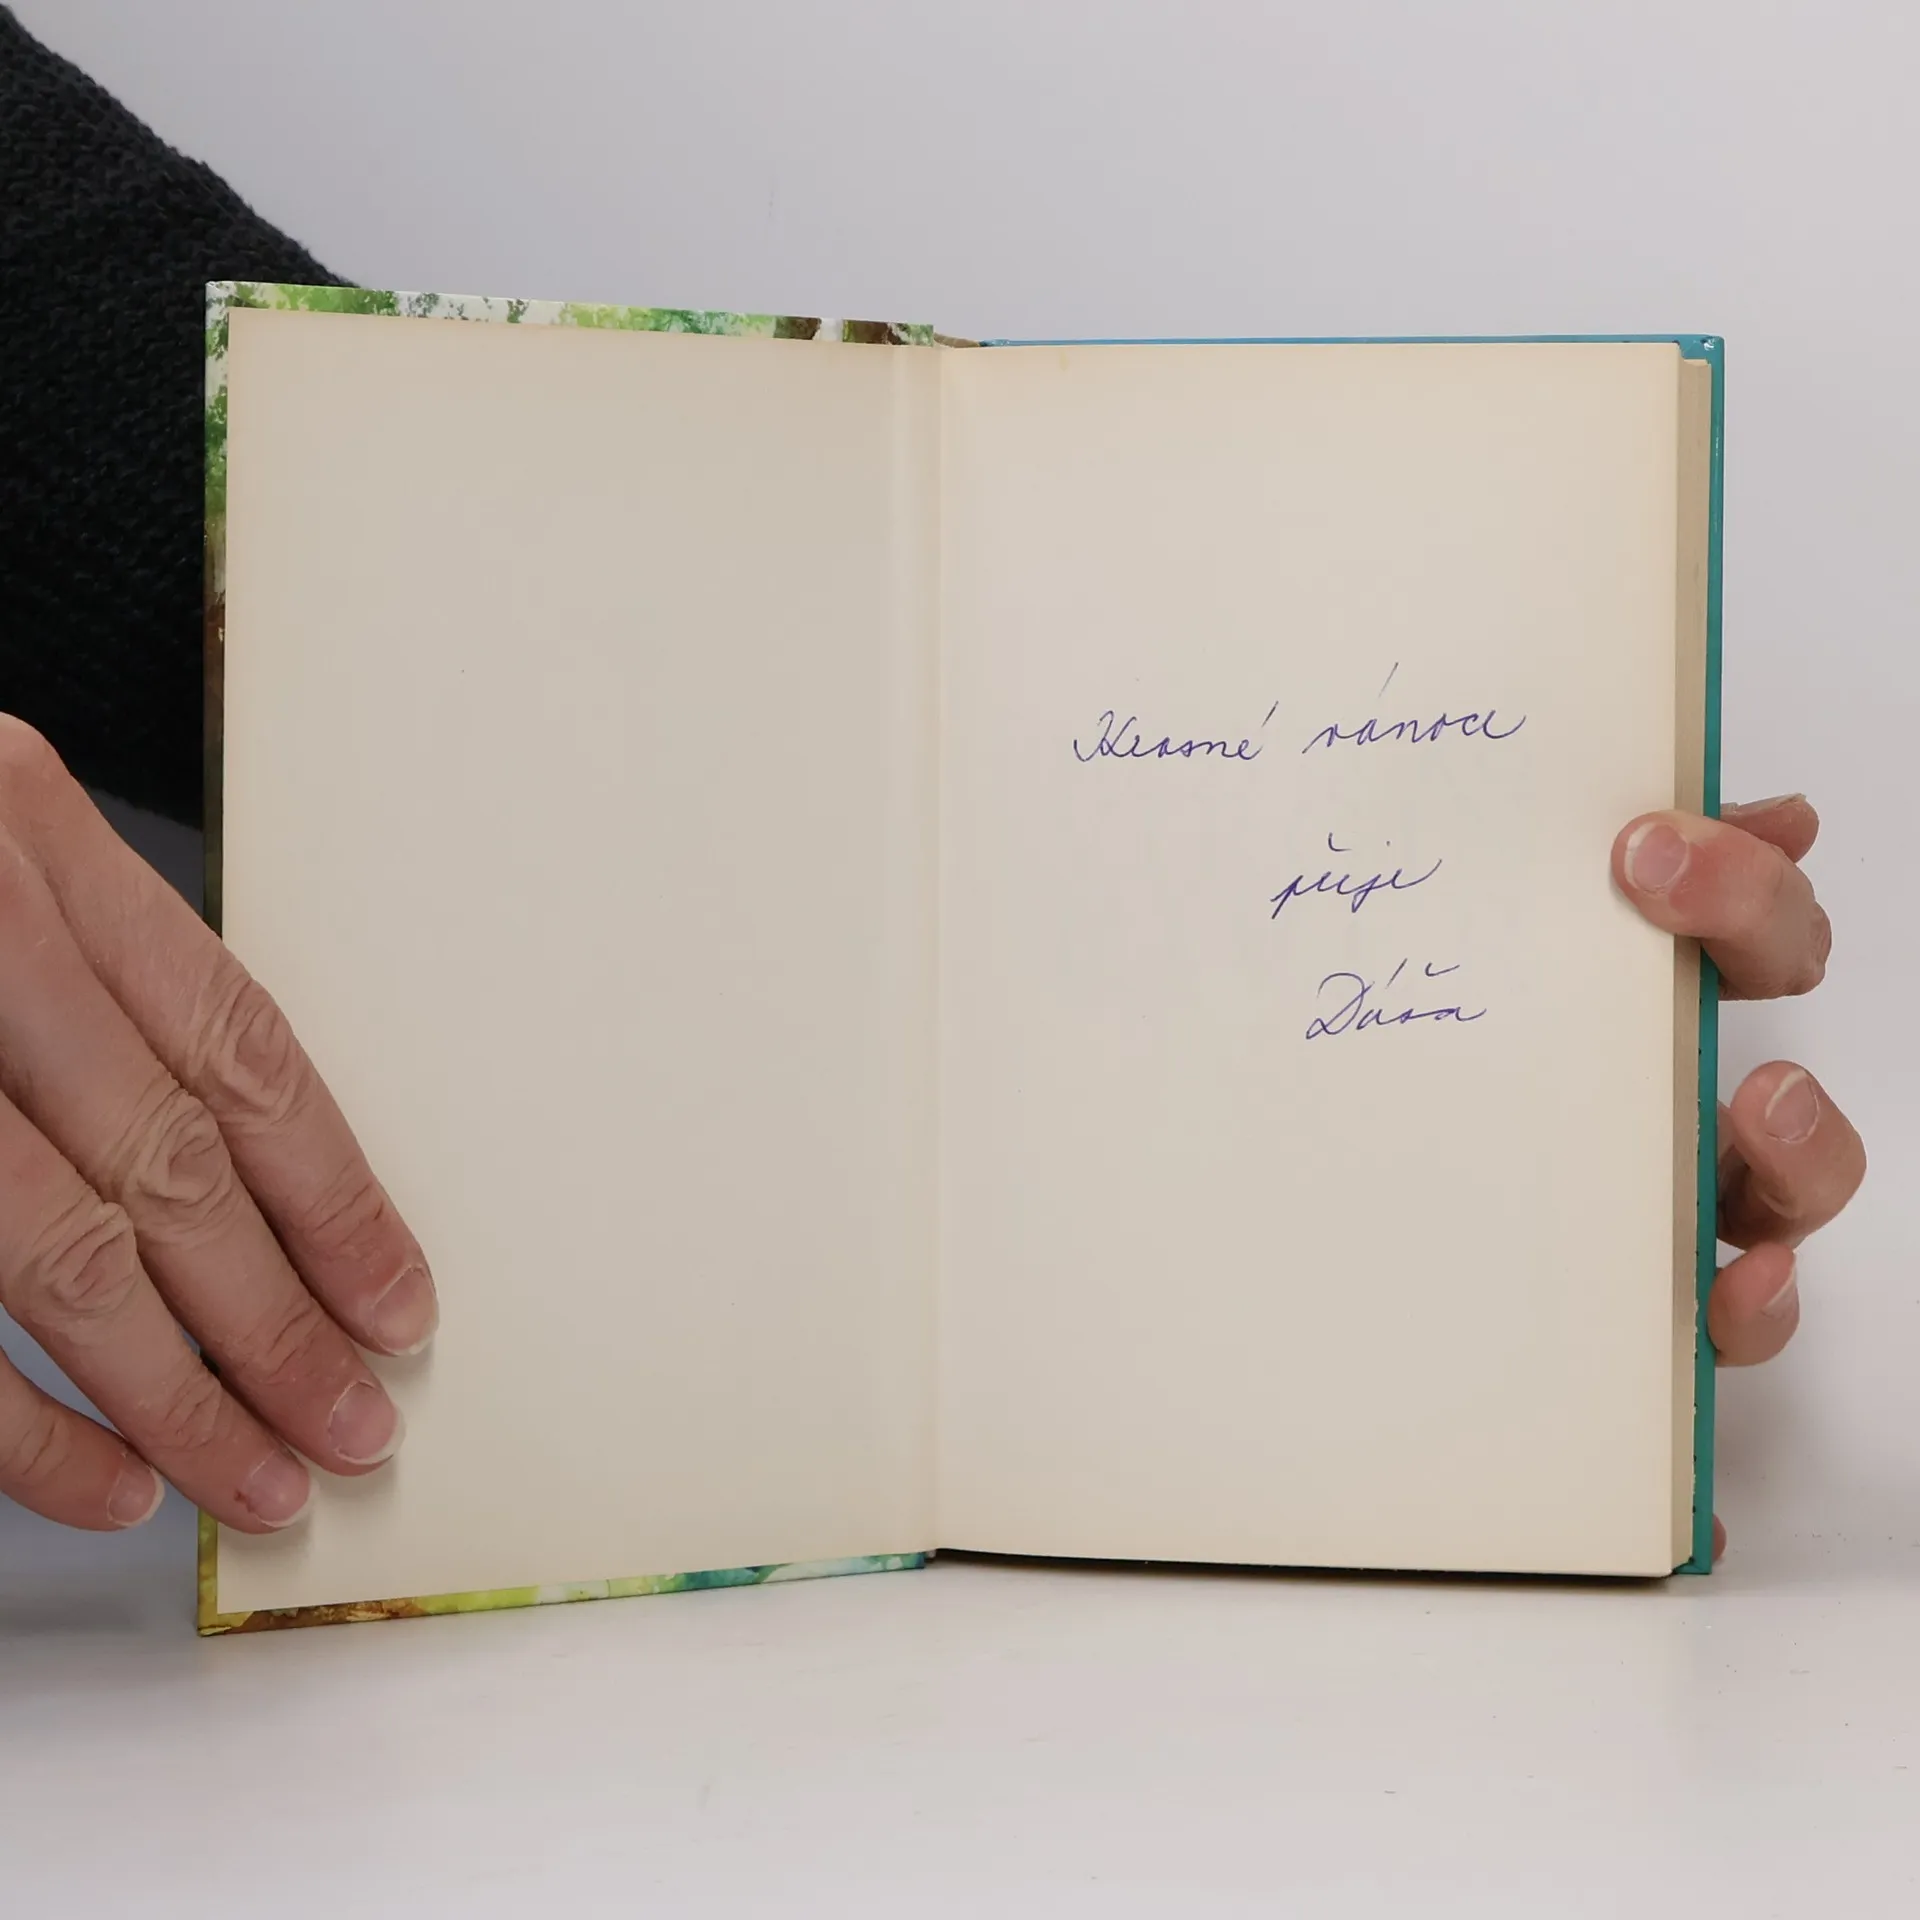 Krásné vánoce
přeje
Dáša